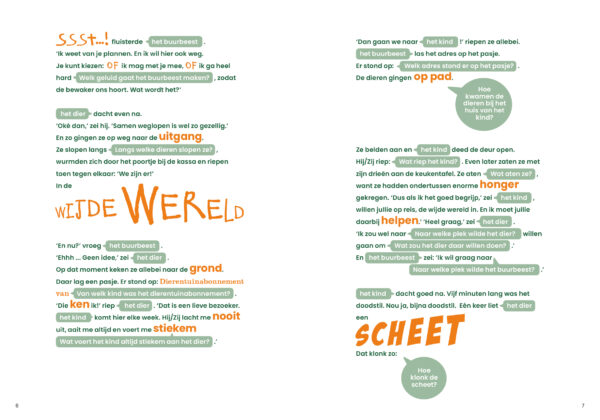 SSST...! fluisterde het buurbeest .
'Ik weet van je plannen. En ik wil hier ook weg.
Je kunt kiezen: OF ik mag met je mee, OF ik ga heel
hard Welk geluid gaat het buurbeest maken? , zodat
de bewaker ons hoort. Wat wordt het?'
het dier dacht even na.
'Oké dan,' zei hij. 'Samen weglopen is wel zo gezellig.'
En zo gingen ze op weg naar de uitgang.
Ze slopen langs Langs welke dieren slopen ze? ,
wurmden zich door het poortje bij de kassa en riepen
toen tegen elkaar: 'We zijn er!'
In de
WIJDE WERELD
'En nu?' vroeg het buurbeest .
'Ehhh ... Geen idee,' zei het dier .
Op dat moment keken ze allebei naar de grond.
Daar lag een pasje. Er stond op: Dierentuinabonnement
van Van welk kind was het dierentuinabonnement? .
'Die ken ik!' riep het dier . 'Dat is een lieve bezoeker.
het kind komt hier elke week. Hij/Zij lacht me nooit
uit, aait me altijd en voert me stiekem
Wat voert het kind altijd stiekem aan het dier? .'
6
'Dan gaan we naar het kind !' riepen ze allebei.
het buurbeest las het adres op het pasje.
Er stond op: Welk adres stond er op het pasje? .
De dieren gingen op pad.
Hoe
kwamen de
dieren bij het
huis van het
kind?
Ze belden aan en het kind deed de deur open.
Hij/Zij riep: Wat riep het kind? . Even later zaten ze met
zijn drieën aan de keukentafel. Ze aten Wat aten ze? ,
want ze hadden ondertussen enorme honger
gekregen. 'Dus als ik het goed begrijp,' zei het kind ,
willen jullie op reis, de wijde wereld in. En ik moet jullie
daarbij helpen.' 'Heel graag,' zei het dier .
'Ik zou wel naar Naar welke plek wilde het dier? willen
gaan om Wat zou het dier daar willen doen? .'
En het buurbeest zei: 'Ik wil graag naar
Naar welke plek wilde het buurbeest? .'
het kind dacht goed na. Vijf minuten lang was het
doodstil. Nou ja, bijna doodstil. Eén keer liet het dier
een
SCHEET
Dat klonk zo:
Hoe
klonk de
scheet?
7